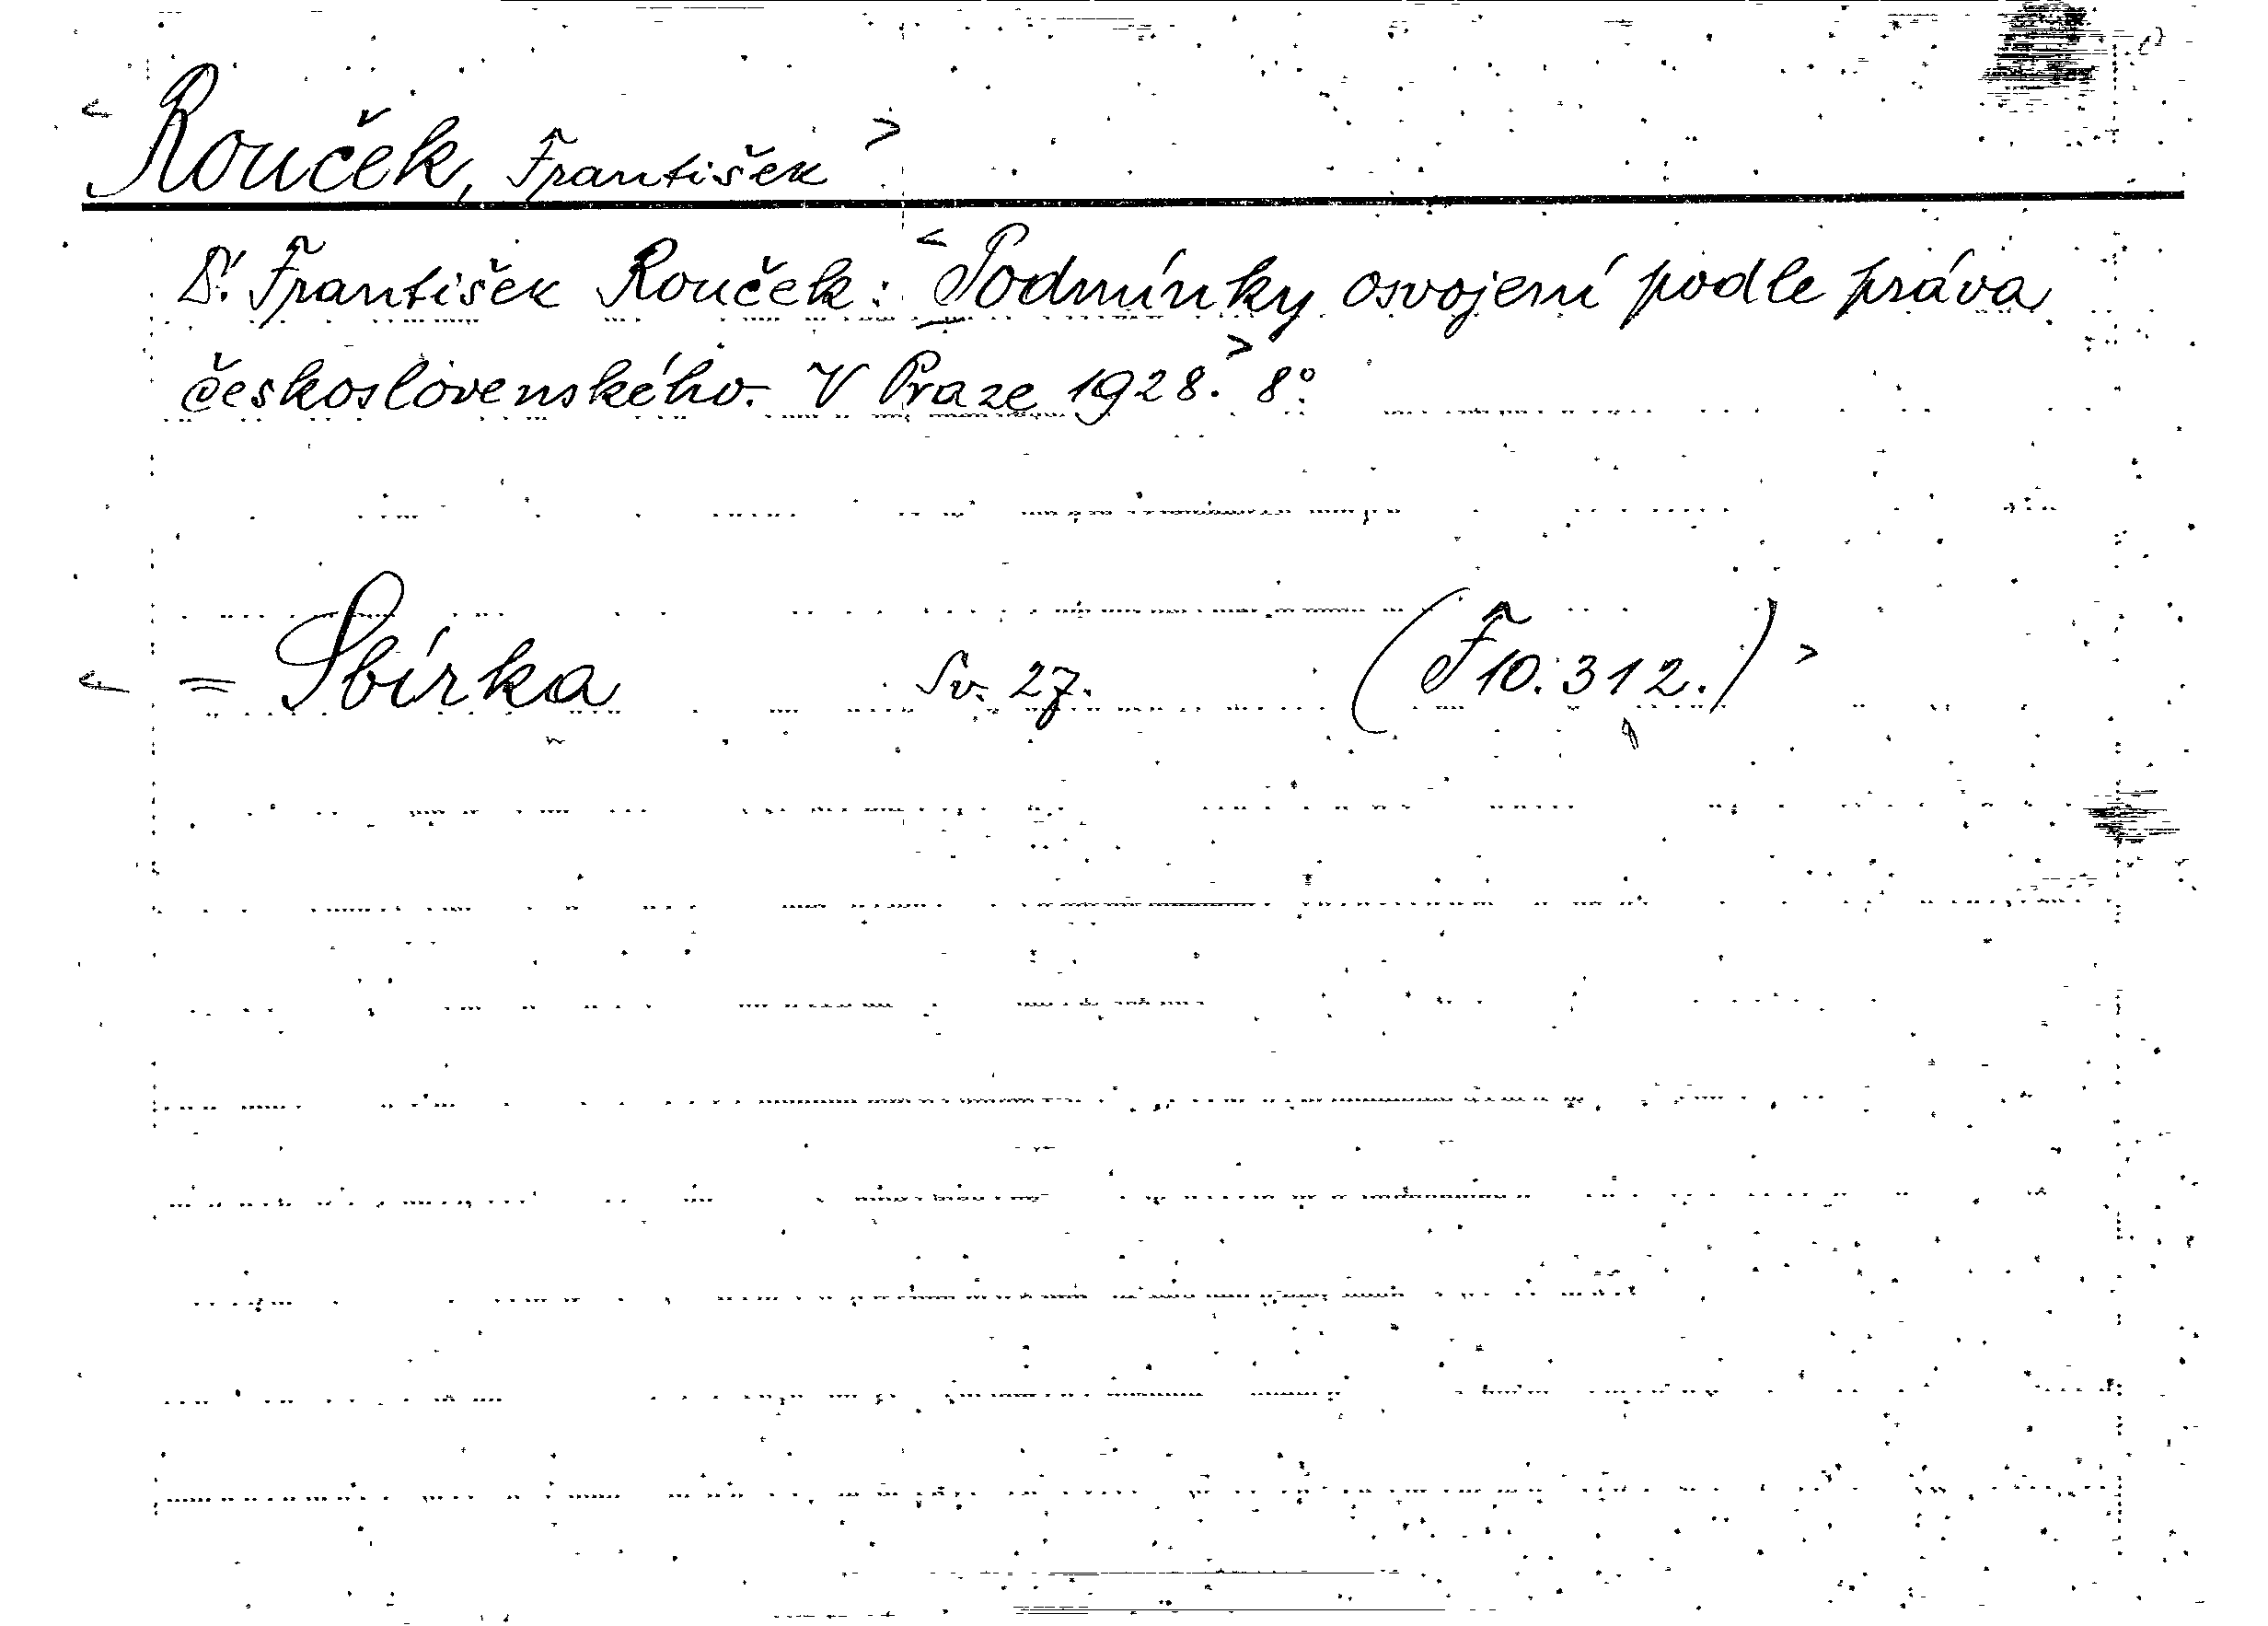 < Rouček, František >
Dr. František Rouček: < Podmínky osvojení podle práva
československého. V Praze 1928. > 8°.
< = Sbírka Sv. 27. (F 10.312.) >